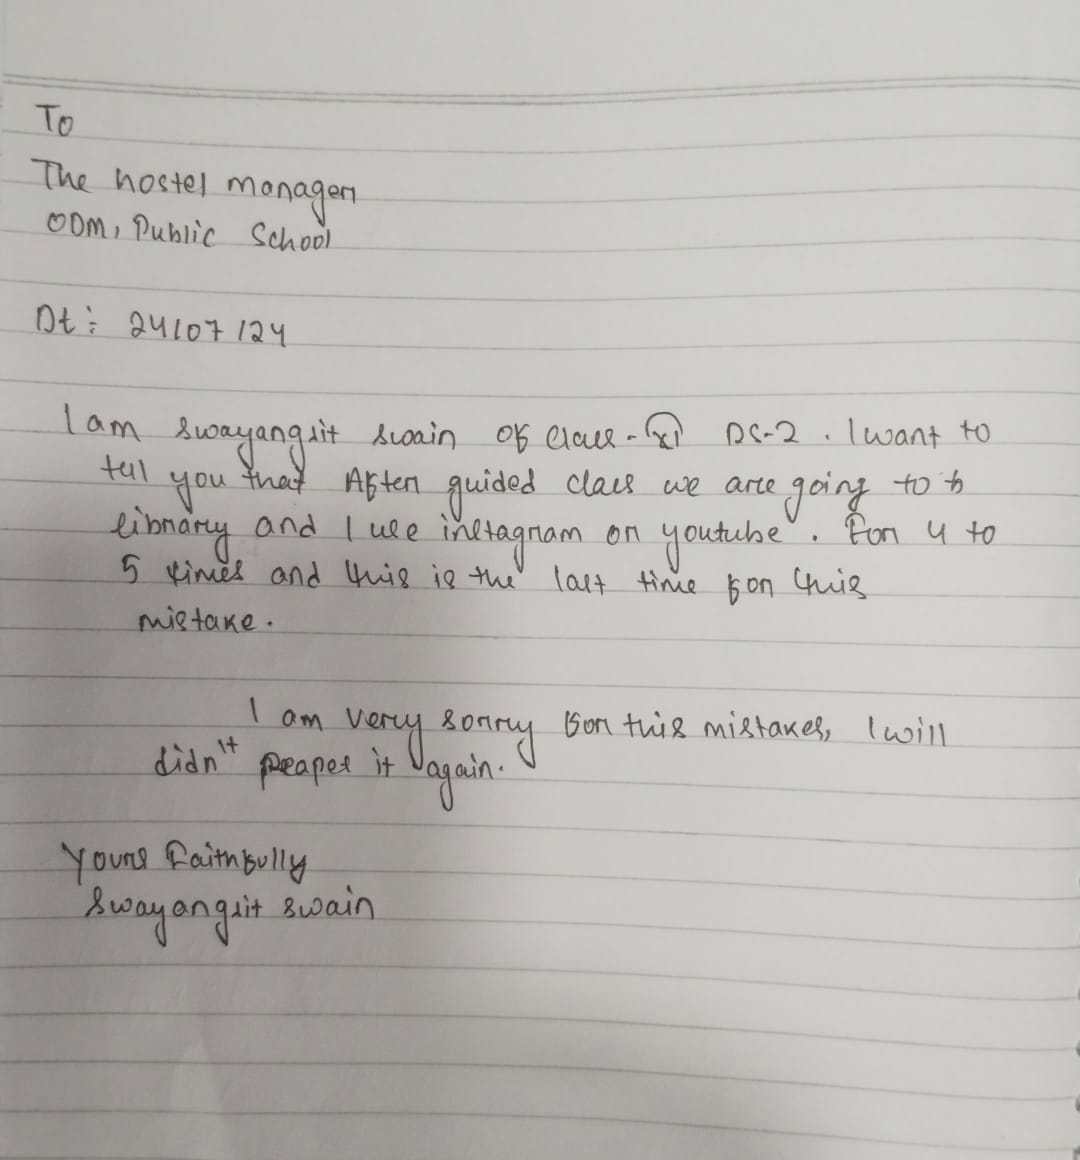 To
The hostel manager
ODM, Public School
Dt: 24/07/24
I am Swayangsit swain of class - XI DS-2. I want to
tell you that After guided class we are going to
library and I use instagram or youtube. For 4 to
5 times and this is the last time for this
mistake.
I am very sorry for this mistakes, I will
didn't peapet it again.
Yours Faithfully
Swayangsit swain